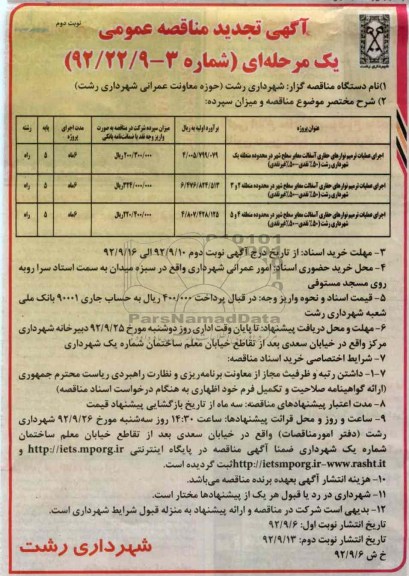 نوبت دوم
آگهی تجدید مناقصه عمومی
یک مرحله‌ای (شماره ۳-۹۲/۲۲/۹)
۱)نام دستگاه مناقصه گزار: شهرداری رشت (حوزه معاونت عمرانی شهرداری رشت)
۲) شرح مختصر موضوع مناقصه و میزان سپرده:
عنوان پروژه | برآورد اولیه به ریال | میزان سپرده شرکت در مناقصه به صورت واریز وجه نقد یا ضمانت‌نامه بانکی | مدت اجرای پروژه | پایه | رشته
اجرای عملیات ترمیم نوارهای حفاری آسفالت معابر سطح شهر در محدوده منطقه یک شهرداری رشت (۵۰٪ نقدی-۵۰٪ غیرنقدی) | ۴/۰۰۵/۷۹۹/۰۷۹ | ۲۰۰/۳۰۰/۰۰۰ریال | ۶ماه | ۵ | راه
اجرای عملیات ترمیم نوارهای حفاری آسفالت معابر سطح شهر در محدوده منطقه ۲ و ۳ شهرداری رشت (۵۰٪ نقدی-۵۰٪ غیرنقدی) | ۶/۴۷۶/۸۴۴/۵۱۳ | ۳۲۴/۰۰۰/۰۰۰ریال | ۶ماه | ۵ | راه
اجرای عملیات ترمیم نوارهای حفاری آسفالت معابر سطح شهر در محدوده منطقه ۴ و ۵ شهرداری رشت (۵۰٪ نقدی-۵۰٪ غیرنقدی) | ۴/۸۰۷/۴۲۸/۱۲۵ | ۲۴۰/۴۰۰/۰۰۰ریال | ۶ماه | ۵ | راه
۳- مهلت خرید اسناد: از تاریخ درج آگهی نوبت دوم ۹۲/۹/۱۰ الی ۹۲/۹/۱۶
۴- محل خرید حضوری اسناد: امور عمرانی شهرداری واقع در سبزه میدان به سمت استاد سرا روبه
روی مسجد مستوفی
۵- قیمت اسناد و نحوه واریز وجه: در قبال پرداخت ۴۰۰/۰۰۰ ریال به حساب جاری ۹۰۰۰۱ بانک ملی
شعبه شهرداری رشت
۶- مهلت و محل دریافت پیشنهاد: تا پایان وقت اداری روز دوشنبه مورخ ۹۲/۹/۲۵ دبیرخانه شهرداری
مرکز واقع در خیابان سعدی بعد از تقاطع خیابان معلم ساختمان شماره یک شهرداری
۷- شرایط اختصاصی خرید اسناد مناقصه:
۷-۱- داشتن رتبه و ظرفیت مجاز از معاونت برنامه‌ریزی و نظارت راهبردی ریاست محترم جمهوری
(ارائه گواهینامه صلاحیت و تکمیل فرم خود اظهاری به هنگام درخواست اسناد مناقصه)
۸- مدت اعتبار پیشنهادهای مناقصه: سه ماه از تاریخ بازگشایی پیشنهاد قیمت
۹- ساعت و روز و محل قرائت پیشنهادها: ساعت ۱۴:۳۰ روز سه‌شنبه مورخ ۹۲/۹/۲۶ شهرداری
رشت (دفتر امورمناقصات) واقع در خیابان سعدی بعد از تقاطع خیابان معلم ساختمان
شماره یک شهرداری ضمنا آگهی مناقصه در پایگاه اینترنتی http://iets.mporg.ir و
http://ietsmporg.ir-www.rasht.it ثبت گردیده است.
۱۰- هزینه انتشار آگهی بعهده برنده مناقصه می‌باشد.
۱۱- شهرداری در رد یا قبول هر یک از پیشنهادها مختار است.
۱۲- بدیهی است شرکت در مناقصه و ارائه پیشنهاد به منزله قبول شرایط شهرداری است.
تاریخ انتشار نوبت اول: ۹۲/۹/۶
تاریخ انتشار نوبت دوم: ۹۲/۹/۱۳
خ ش ۹۲/۹/۶
شهرداری رشت
ParsNamadData